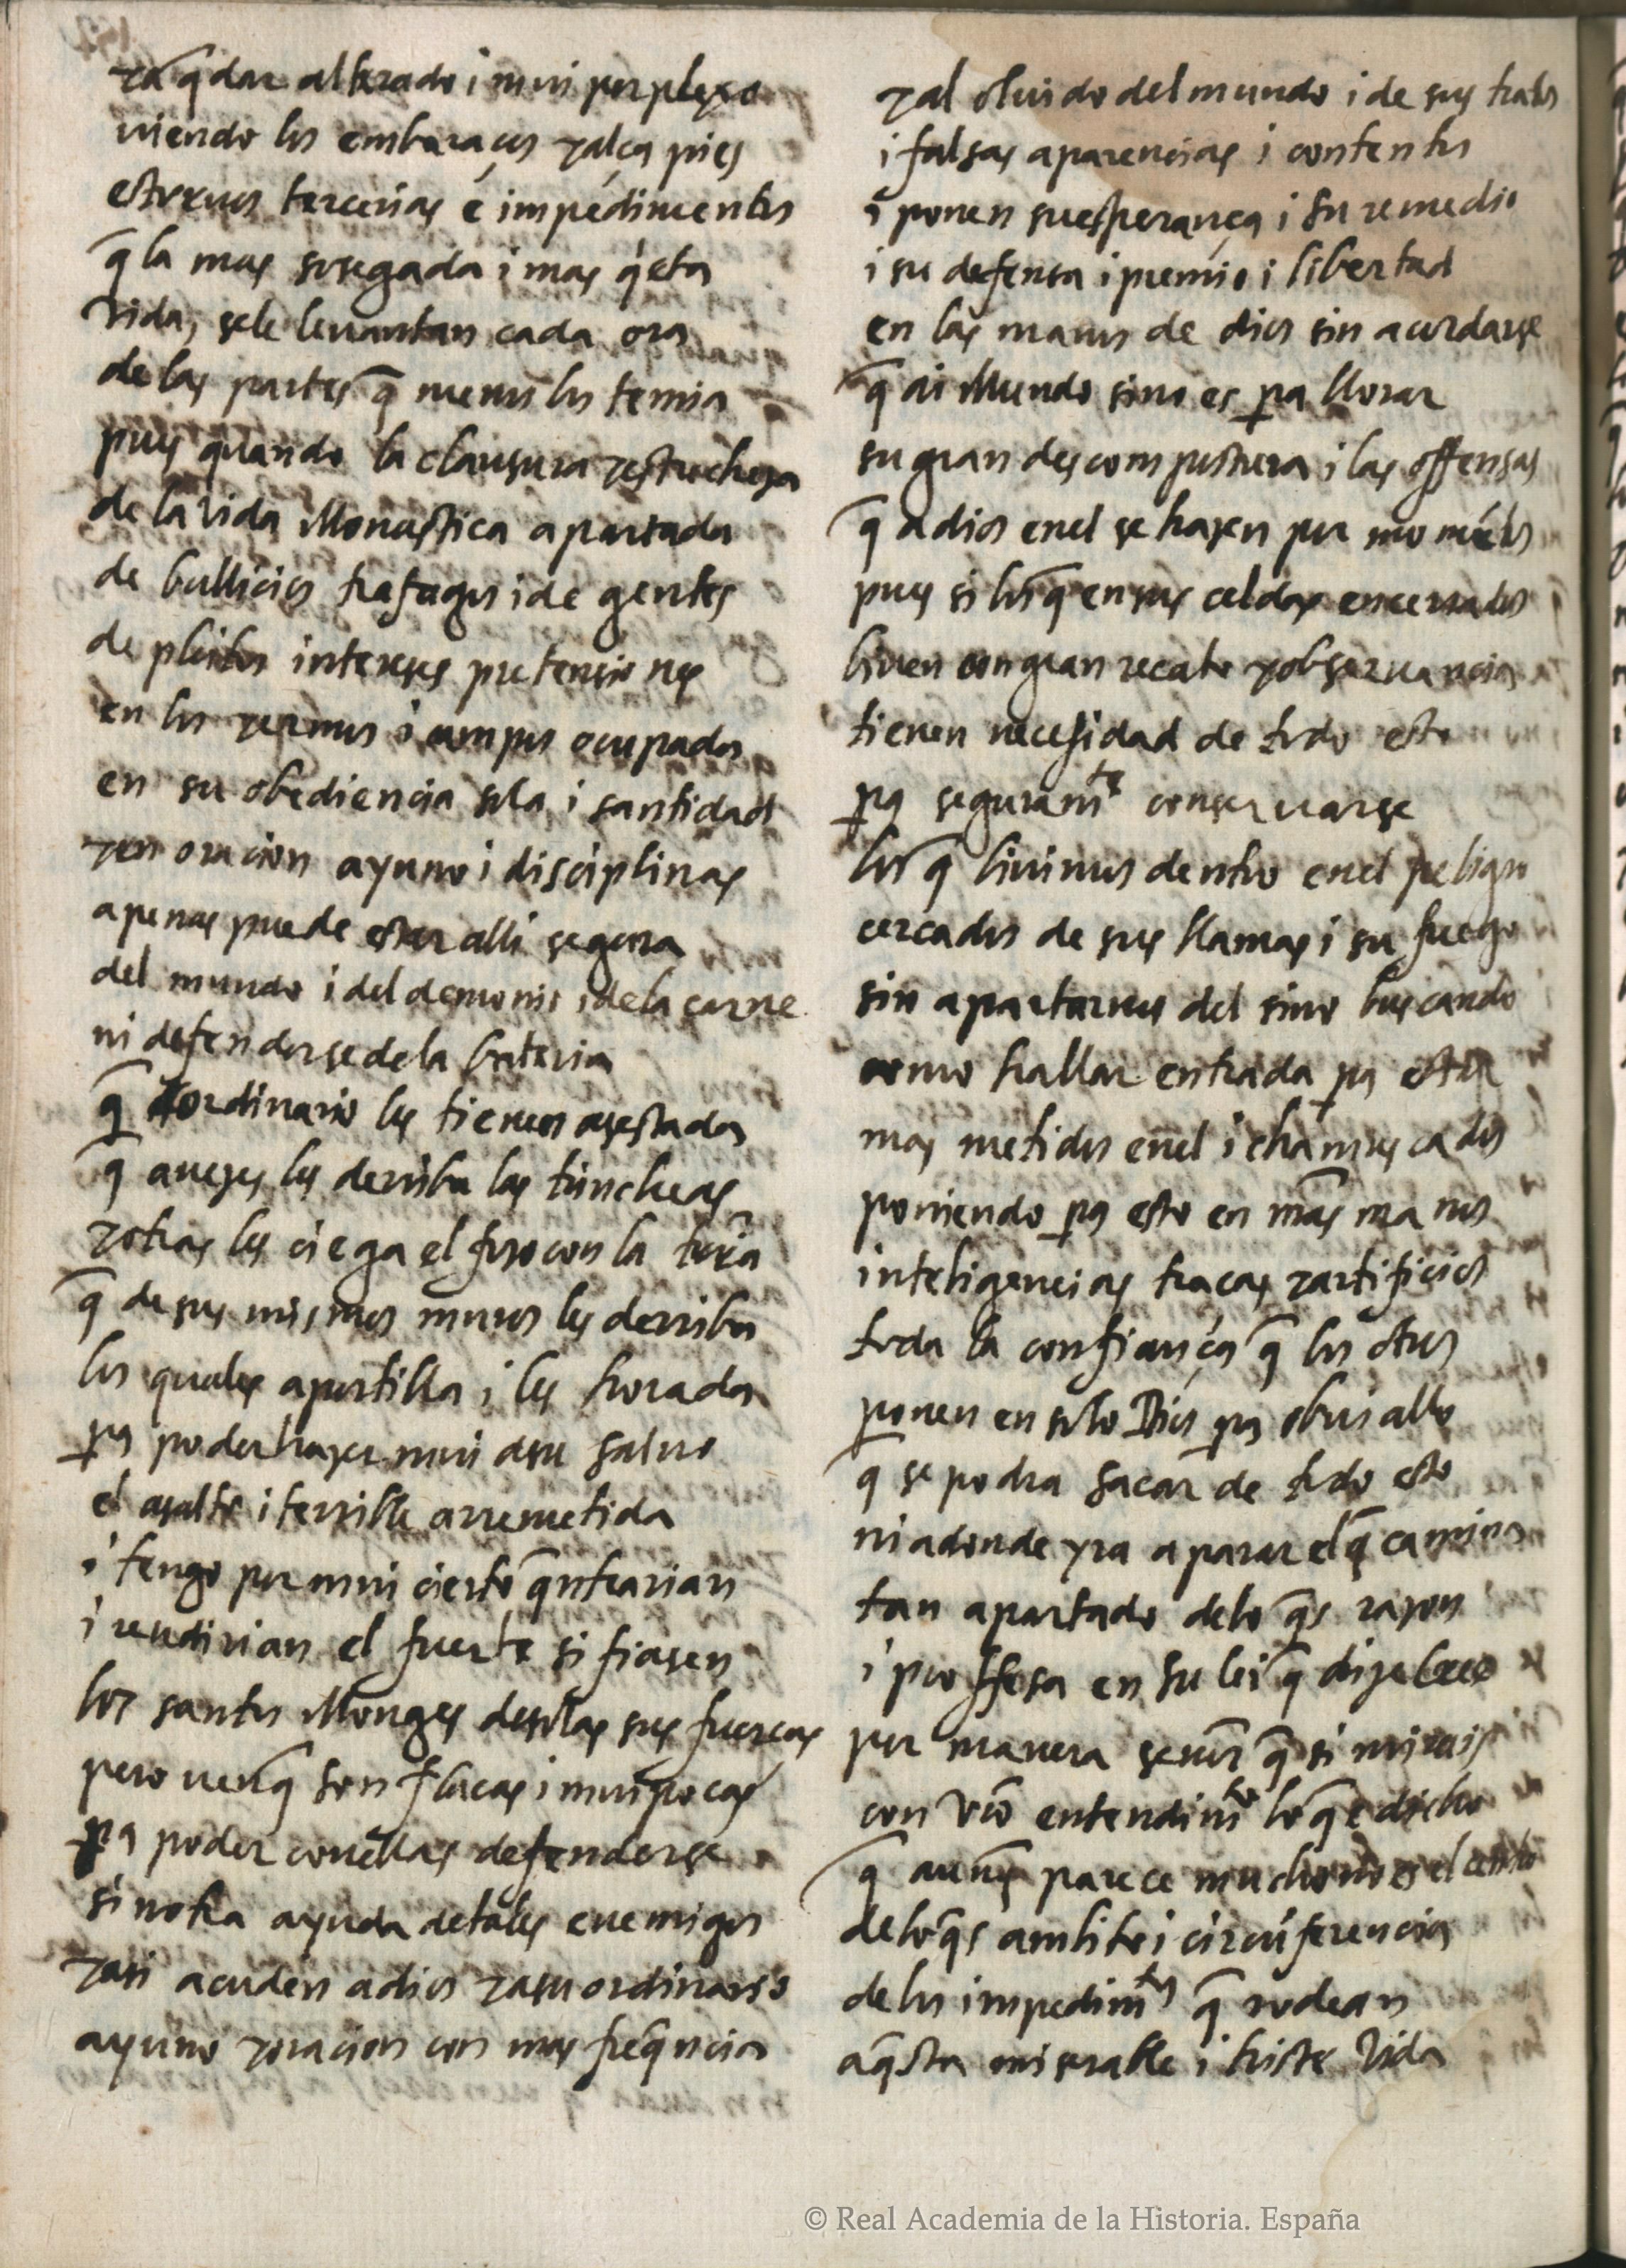 ya q̄dar alterado i mui perplexo
uiendo los embaraços yalça pies
estoruos tercerias e impedimentos
q̄ la mas sosegada i mas q́eta
vida, sele leuantan cada ora
de las partes q̄ menos los temia
pues quando la clausura yestrecheza
de la vida Monastica apartada
de bullicios trafagos i de gentes
de pleitos intereses pretensiones
en los yermos i campos ocupados
en su obediencia sola i santidad
yen oracion ayuno i disciplinas
apenas puede estar alli segura
del mundo i del demonio i dela carne
ni defenderse de la bateria
q̄ dordinario les tienen asestada
q̄ auezes les derriba las trincheas
yotras les ciega el foso con la tierra
q̄ de sus mismos muros les derriba
los quales aportilla i les horada
pa poder hazer mui asu saluo
el asalto i terrible arremetida
i tengo por mui cierto q̄ntrarian
i rendirian el fuerte si fiasen
los santos Monges desolas sus fuerças
pero uenq̄ son flacas i mui pocas
pa poder conellas defenderse
sinotra ayuda detales enemigos
yasi acuden adios yasu ordinario
ayuno yoracion con mas freq̄ncia
yal oluido del mundo i de sus tratos
i falsas aparencias i contentos
i ponen suesperança i su remedio
i su defensa i premio i libertad
en las manos de dios sin acordarse
q̄ ai Mundo sino es pa llorar
su gran descompostura i las offensas
q̄ a dios enel se hazen por momētos
pues si losq̄ ensus celdas encerrados
biuen con gran recato yobseruancia
tienen necesidad de todo esto
pa seguramte conseruarse
los q̄ biuimos dentro enel peligro
cercados de sus llamas i su fuego
sin apartarnos del sino buscando
como hallar entrada pa estar
mas metidos enel i chamuscados
poniendo pa esto en n̄ras manos
inteligencias traças yartificios
toda la confiança q̄ los otros
ponen en solo Dios pa obrisallo
q̄ se podra sacar de todo esto
ni adonde yra a parar elq̄ camina
tan apartado delo q̄s razon
i proffesa en su lei q̄ dize creo
por manera señor q̄ si mirais
con vr̄o entendimto loq̄ e dicho
q̄ aunq̄s parece mucho no es el cento
deloq̄s ambito i circūferencia
delos impedimtos q̄ rodean
aq̄sta miserable i triste Vida
© Real Academia de la Historia. España